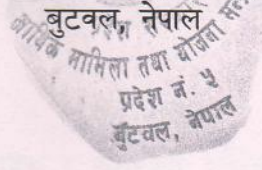 बुटवल, नेपाल
आर्थिक मामिला तथा योजना
प्रदेश नं. ५
बुटवल, नेपाल